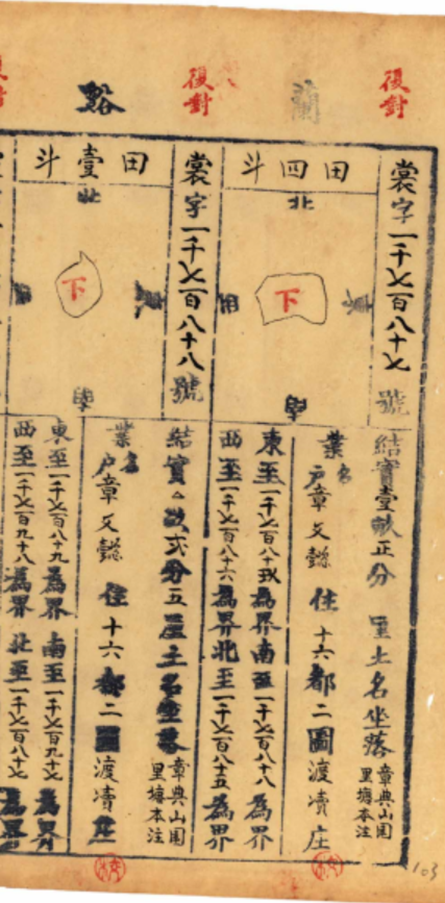 後對
蘭
後對
谿
裳字一千七百八十七號
田四斗
北
下
結實壹畝正分 厘土名坐落
章典山園
里塘本注
業戶名章文懿 住十六都二圖渡瀆庄
東至一千七百八十玖為界南至一千七百八十八為界
西至一千七百八十六為界北至一千七百八十五為界
裳字一千七百八十八號
田壹斗
北
下
結實 畝弍分五厘土名坐落
章典山園
里塘本注
業戶名章文懿 住十六都二圖渡瀆庄
東至一千七百八十九為界 南至一千七百九十七為界
西至一千七百九十八為界 北至一千七百八十七為界
103